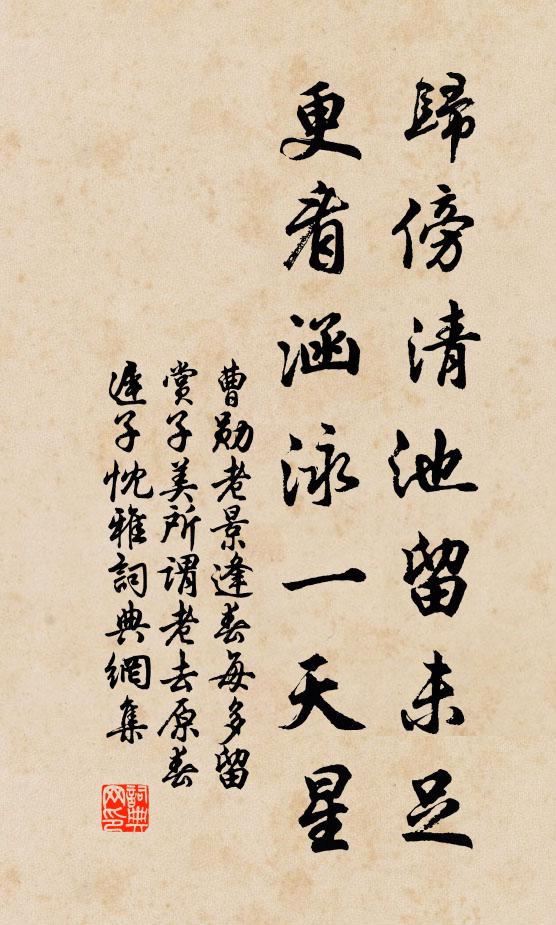 歸傍清池留未足
更看涵泳一天星
曹勛老景逢春每多留
賞子美所謂老去原春
遲子忱雅詞典網集
詞典网印